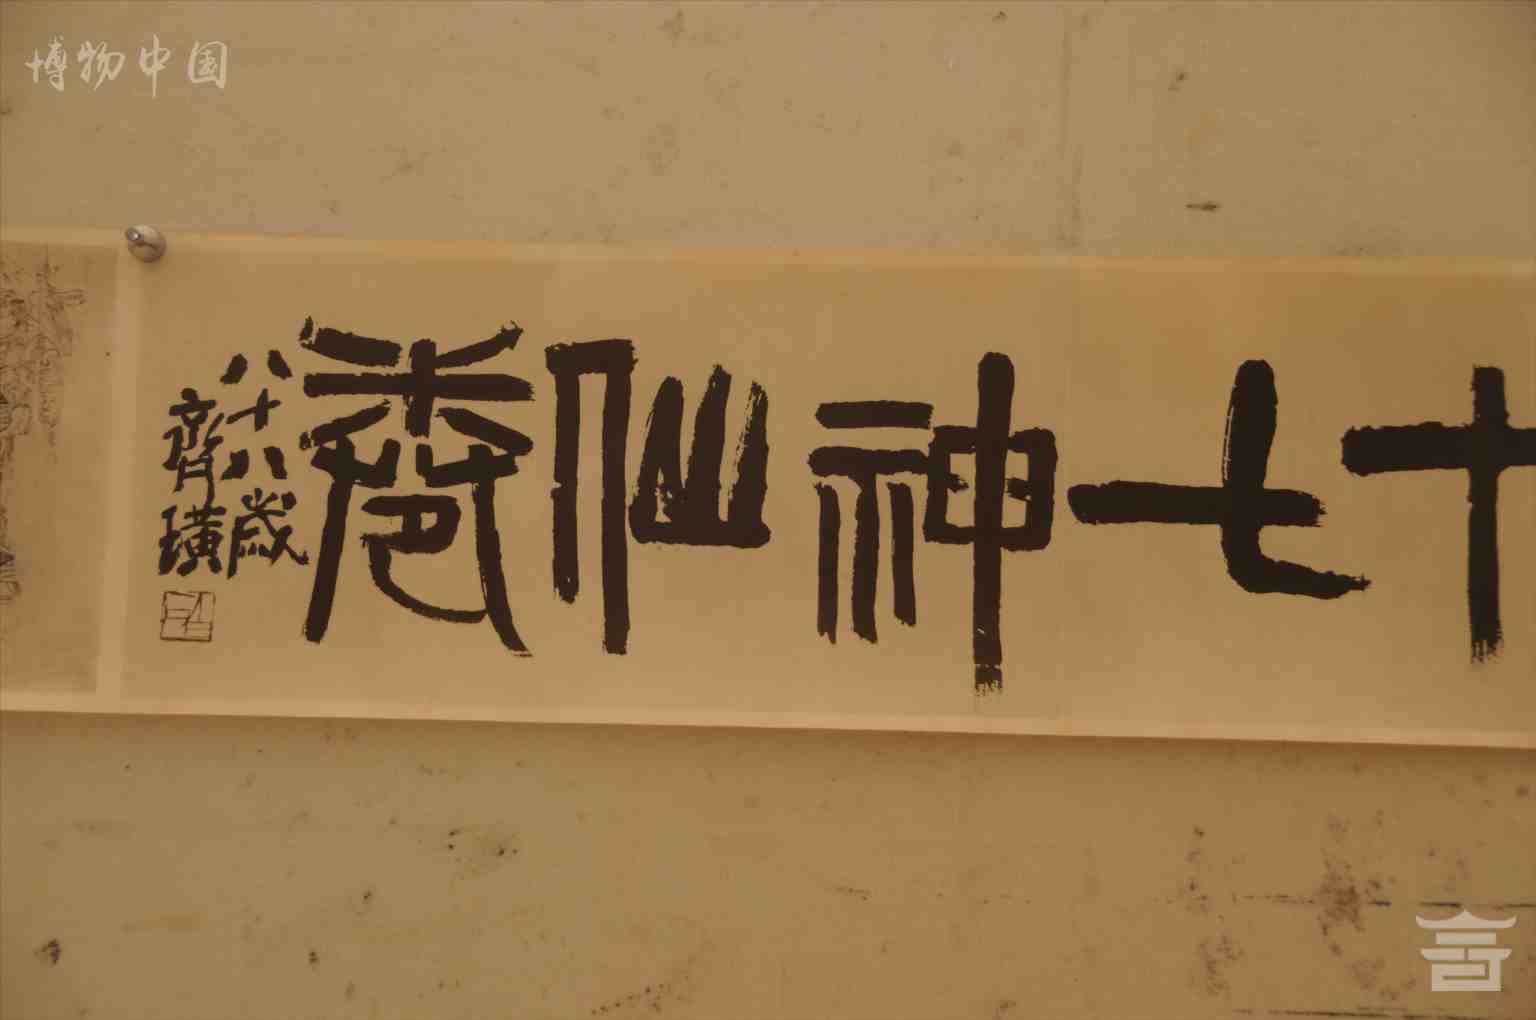 博物中国
十七神仙卷
八十八歲
齊璜